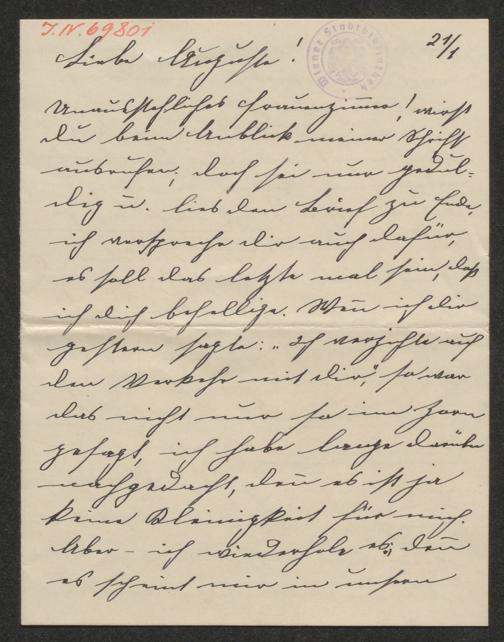 I.N. 69801
21/1
Wiener Stadtbibliothek
Liebe Auguste!
Unausstehliches Frauenzimmer! wirst
du beim Anblick meiner Schrift
ausrufen; doch sei nur gedul-
dig u. lies den Brief zu Ende,
ich verspreche dir auch dafür,
es soll das letzte mal sein, daß
ich dich behellige. Weñ ich dir
gestern sagte: „Ich verzichte auf
den Verkehr mit dir", so war
das nicht nur so im Zorn
gesagt, ich habe lange darüber
nachgedacht, deñ es ist ja
keine Kleinigkeit für mich.
Aber – ich wiederhole es; deñ
es scheint mir in unsern